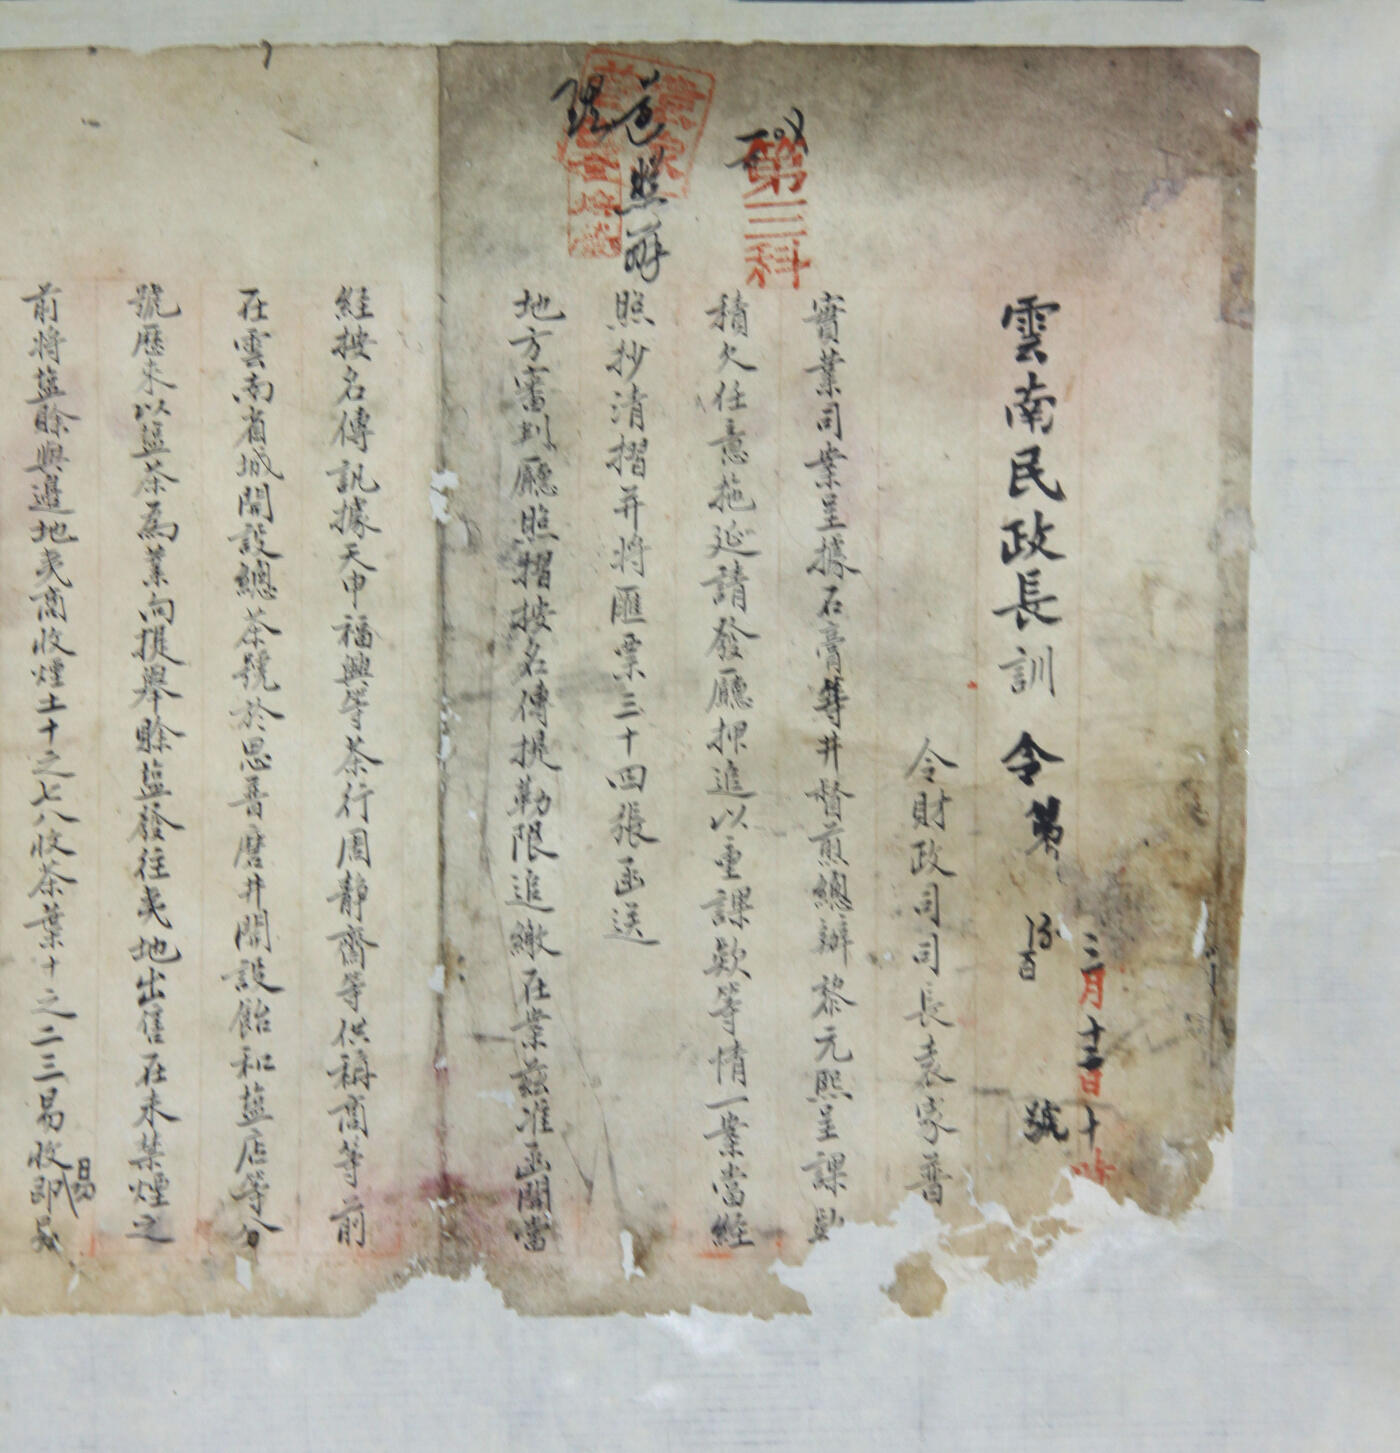 三月十二日十時
雲南民政長訓令第
百
號
令財政司司長袁家普
第三科
實業司案呈據石膏等井督煎總辦黎元熙呈課
積欠任意拖延請發廳押追以重課款等情一案當經
照辦
照抄清摺并將匯票三十四張函送
地方審判廳照摺按名傳提勒限追繳在案茲准函開當
經按名傳訊據天申福興等茶行周靜齋等供稱商等前
在雲南省城開設總茶號於思普磨井開設飴和盐店等分
號歷來以盐茶為業向提舉賒盐發往夷地出售在未禁煙之
前將盐賒與邊地夷商收煙土十之七八收茶葉十之二三易收